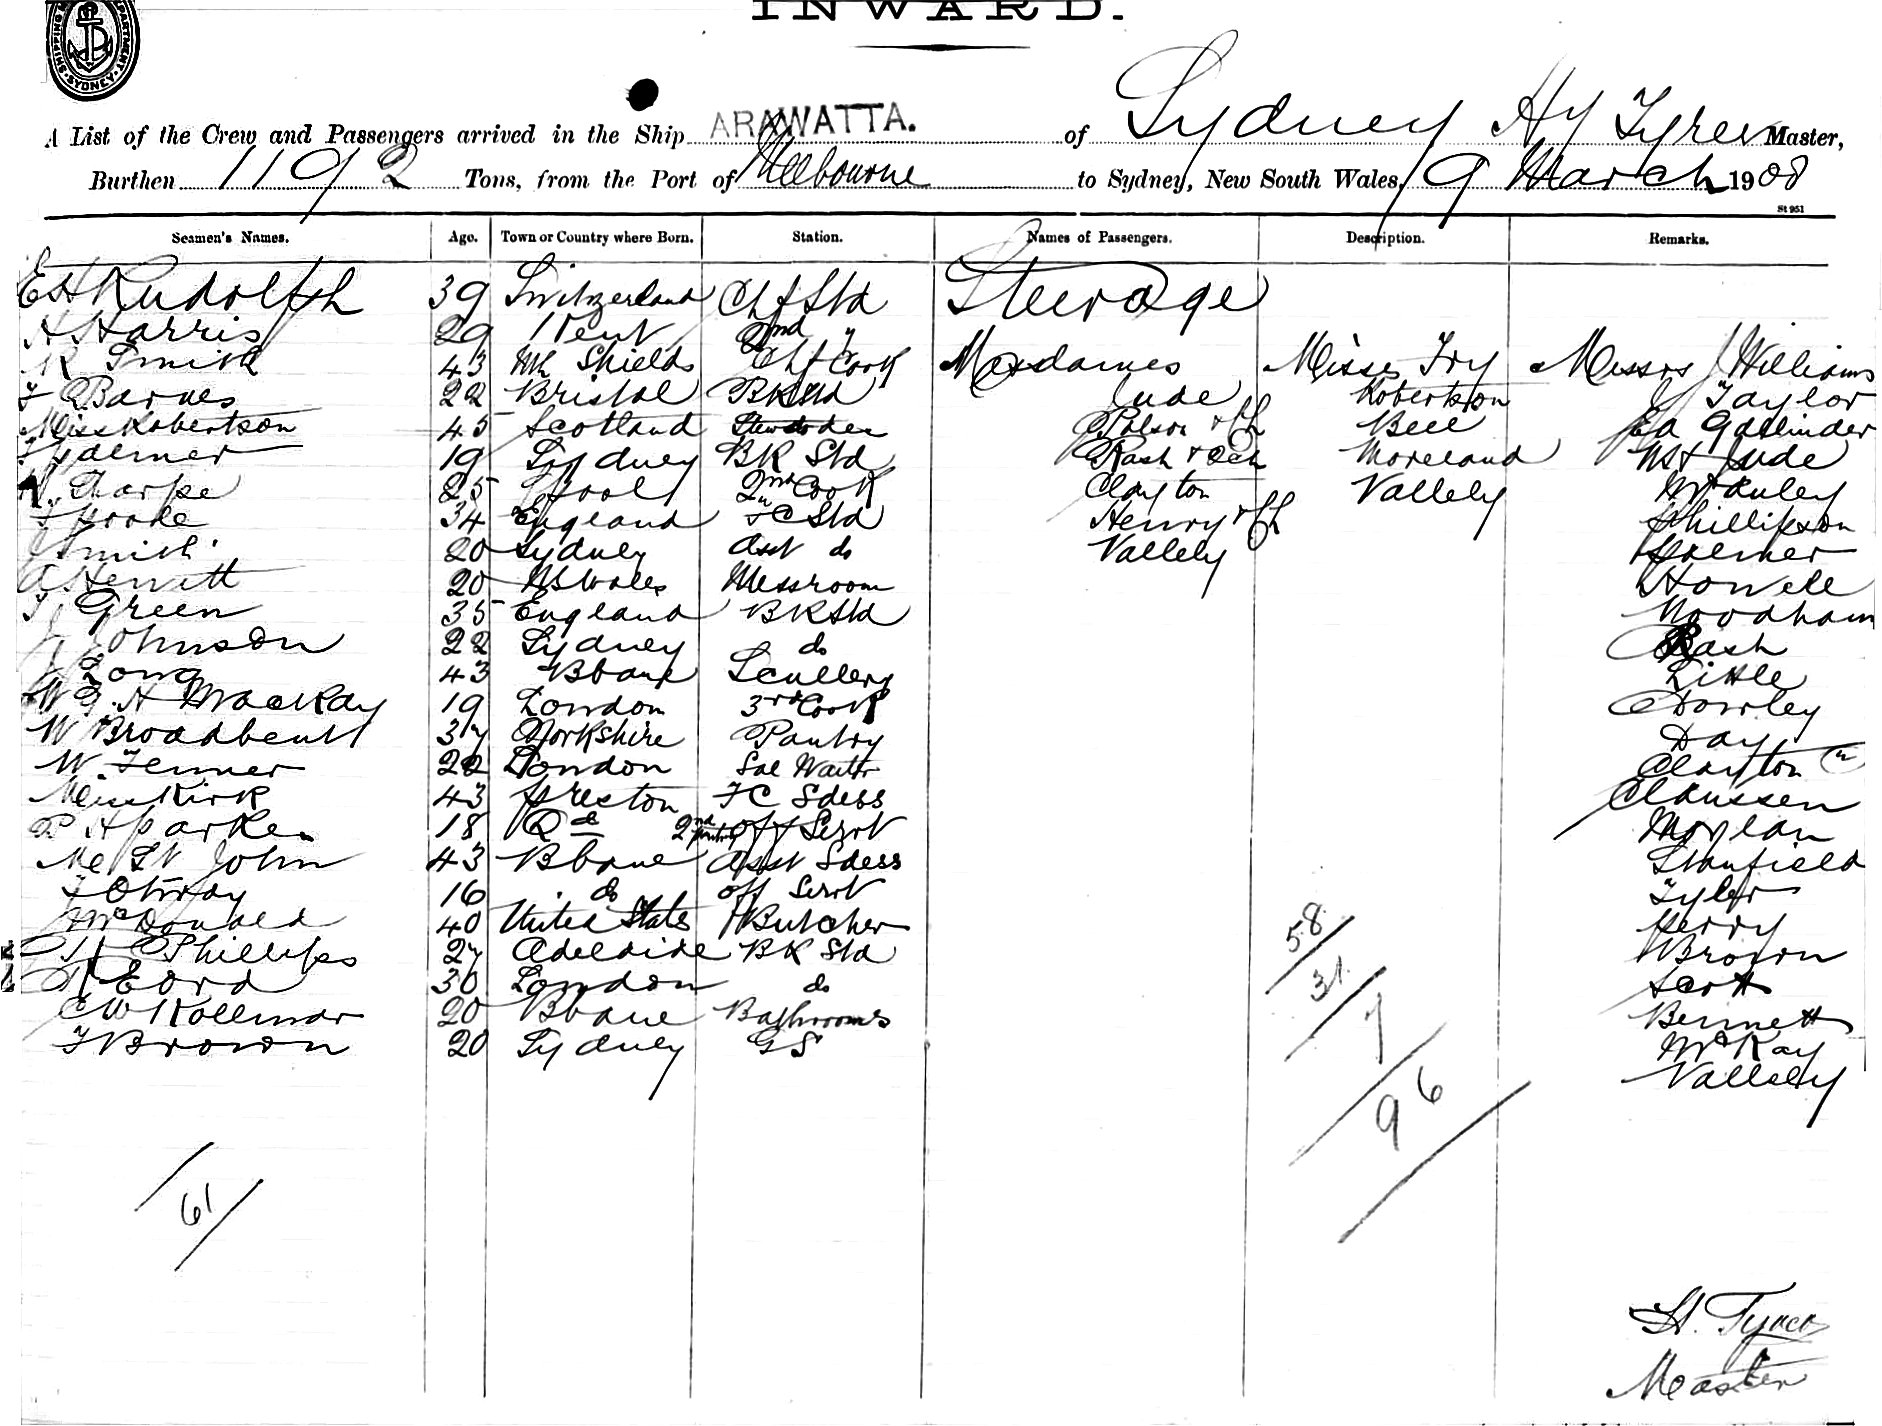 INWARD.
A List of the Crew and Passengers arrived in the Ship ARAWATTA. of Sydney Hy Tyrer Master,
Burthen 1192 Tons, from the Port of Melbourne to Sydney, New South Wales, 9 March 1908
St 951
Seamen's Names. Age. Town or Country where Born. Station. Names of Passengers. Description. Remarks.
E H Rudolph 39 Switzerland Chf Std Steerage
H Harris 29 Kent 2nd "
R Smith 43 Nth Shields Chf Cook Mesdames Misses Fry Messrs J Williams
F Barnes 22 Bristol BK Std Jude Robertson J Taylor
Miss Robertson 45 Scotland Polson & Ch Bell Ed Gallinder
Palmer 19 Sydney BK Std Rash & 2 Ch Moreland Jude
Tharpe 25 L'pool 2nd Cook Clayton Vallely McAuley
Hooke 34 England F C Std Henry & Ch Phillipson
J Smith 20 Sydney Asst do Vallely Palmer
A Hewitt 20 NS Wales Messroom Howell
T Green 35 England BK Std Woodham
J Johnson 22 Sydney do Rash
J Long 43 Bbane Scullery Little
W G H Mackay 19 London 3rd Cook Crowley
W Broadbent 37 Yorkshire Pantry Day
W Fenner 22 London Sal Waiter Clayton
Miss Kirk 43 Preston F C Sdess Claussen
P H Parker 18 Qd 2nd off Servt Moylan
Mc St John 43 Bbane Asst Sdess Stanfield
J Otway 16 do off Servt Tyler
McDonald 40 United States Butcher Perry
H Phillips 27 Adelaide BK Std Brown
R Eord 30 London do Scott
C W Kollmar 20 Bbane Bathrooms Bennett
F Brown 20 Sydney G S McKay
Vallely
58
31
7
96
61
H. Tyrer
Master